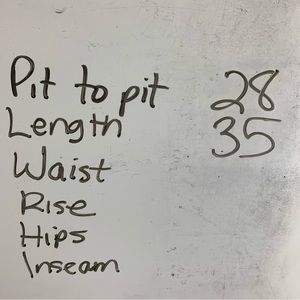 Pit to pit 28
Length 35
Waist
Rise
Hips
Inseam